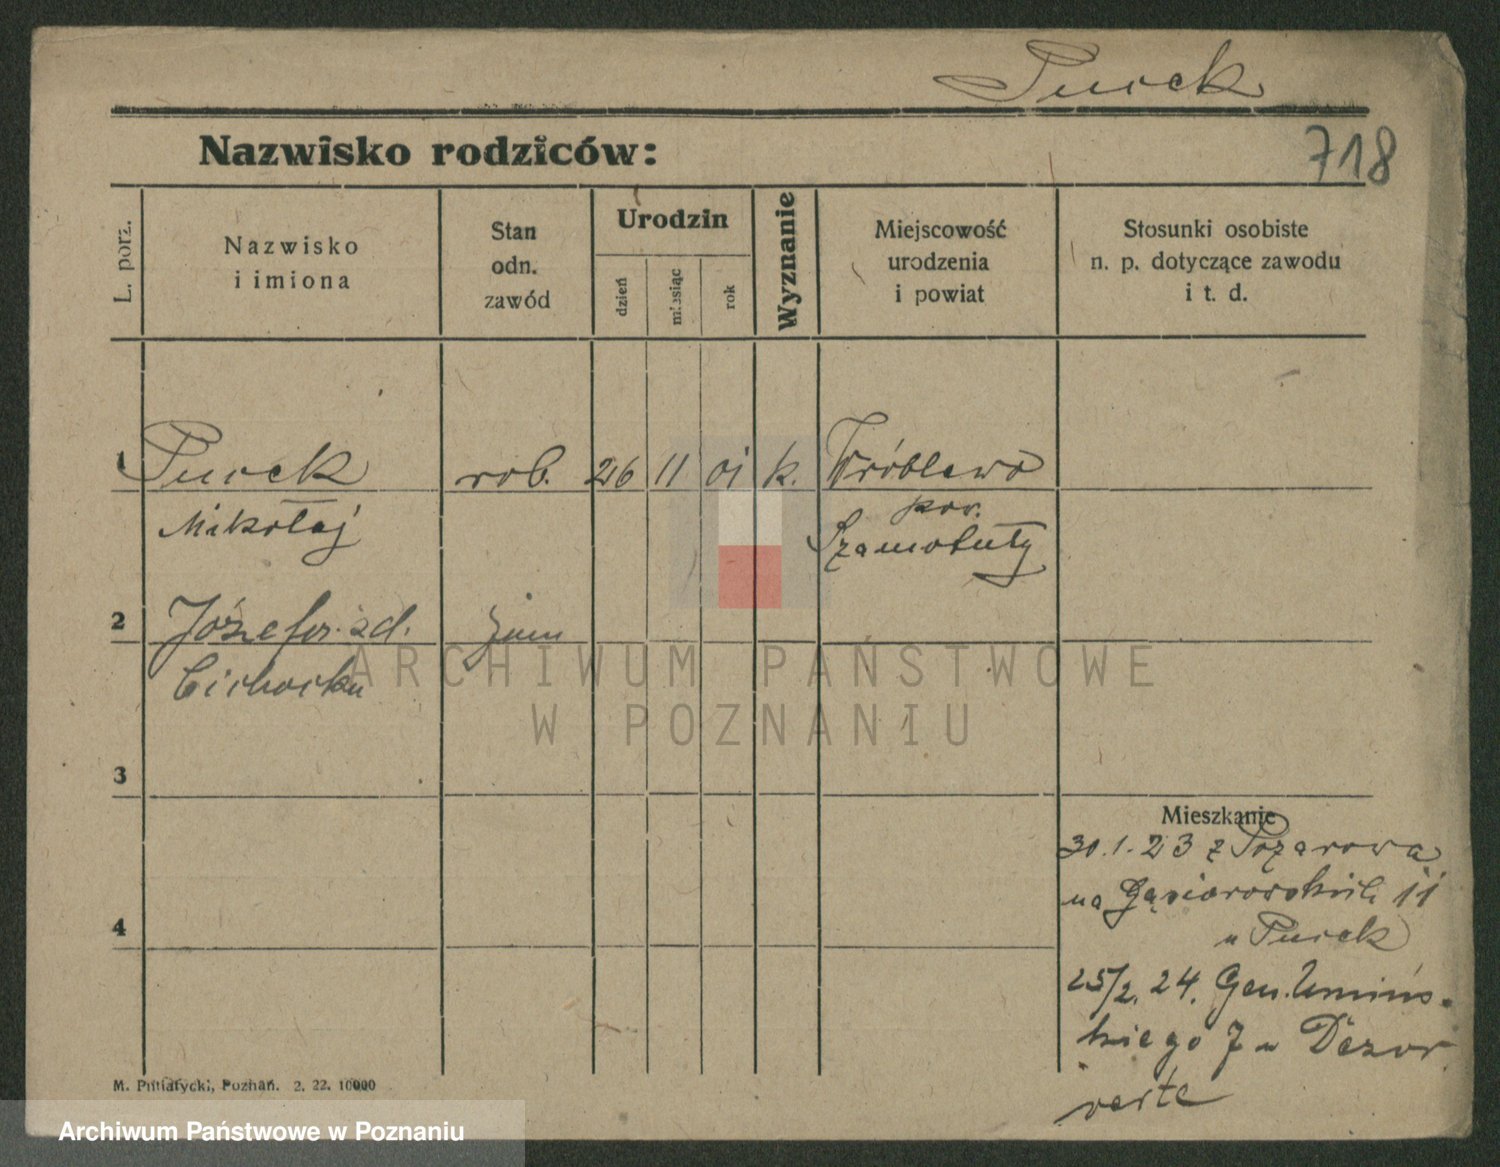 Purek
718
Nazwisko rodziców:
L. porz.
Nazwisko
i imiona
Stan
odn.
zawód
Urodzin
dzień
miesiąc
rok
Wyznanie
Miejscowość
urodzenia
i powiat
Stosunki osobiste
n. p. dotyczące zawodu
i t. d.
1 Purek rob. 26 11 01 k. Wróblewo
Mikołaj pow.
Szamotuły
2 Józefa zd.
Cichocka
3
Mieszkanie
30.1.23 z Pożarowa
na Gąsiorowskich 11
u Purek
4
25/2. 24. Gen. Umińs-
kiego 7 u
M. Putiatycki, Poznań. 2. 22. 10000
ARCHIWUM PAŃSTWOWE
W POZNANIU
Archiwum Państwowe w Poznaniu